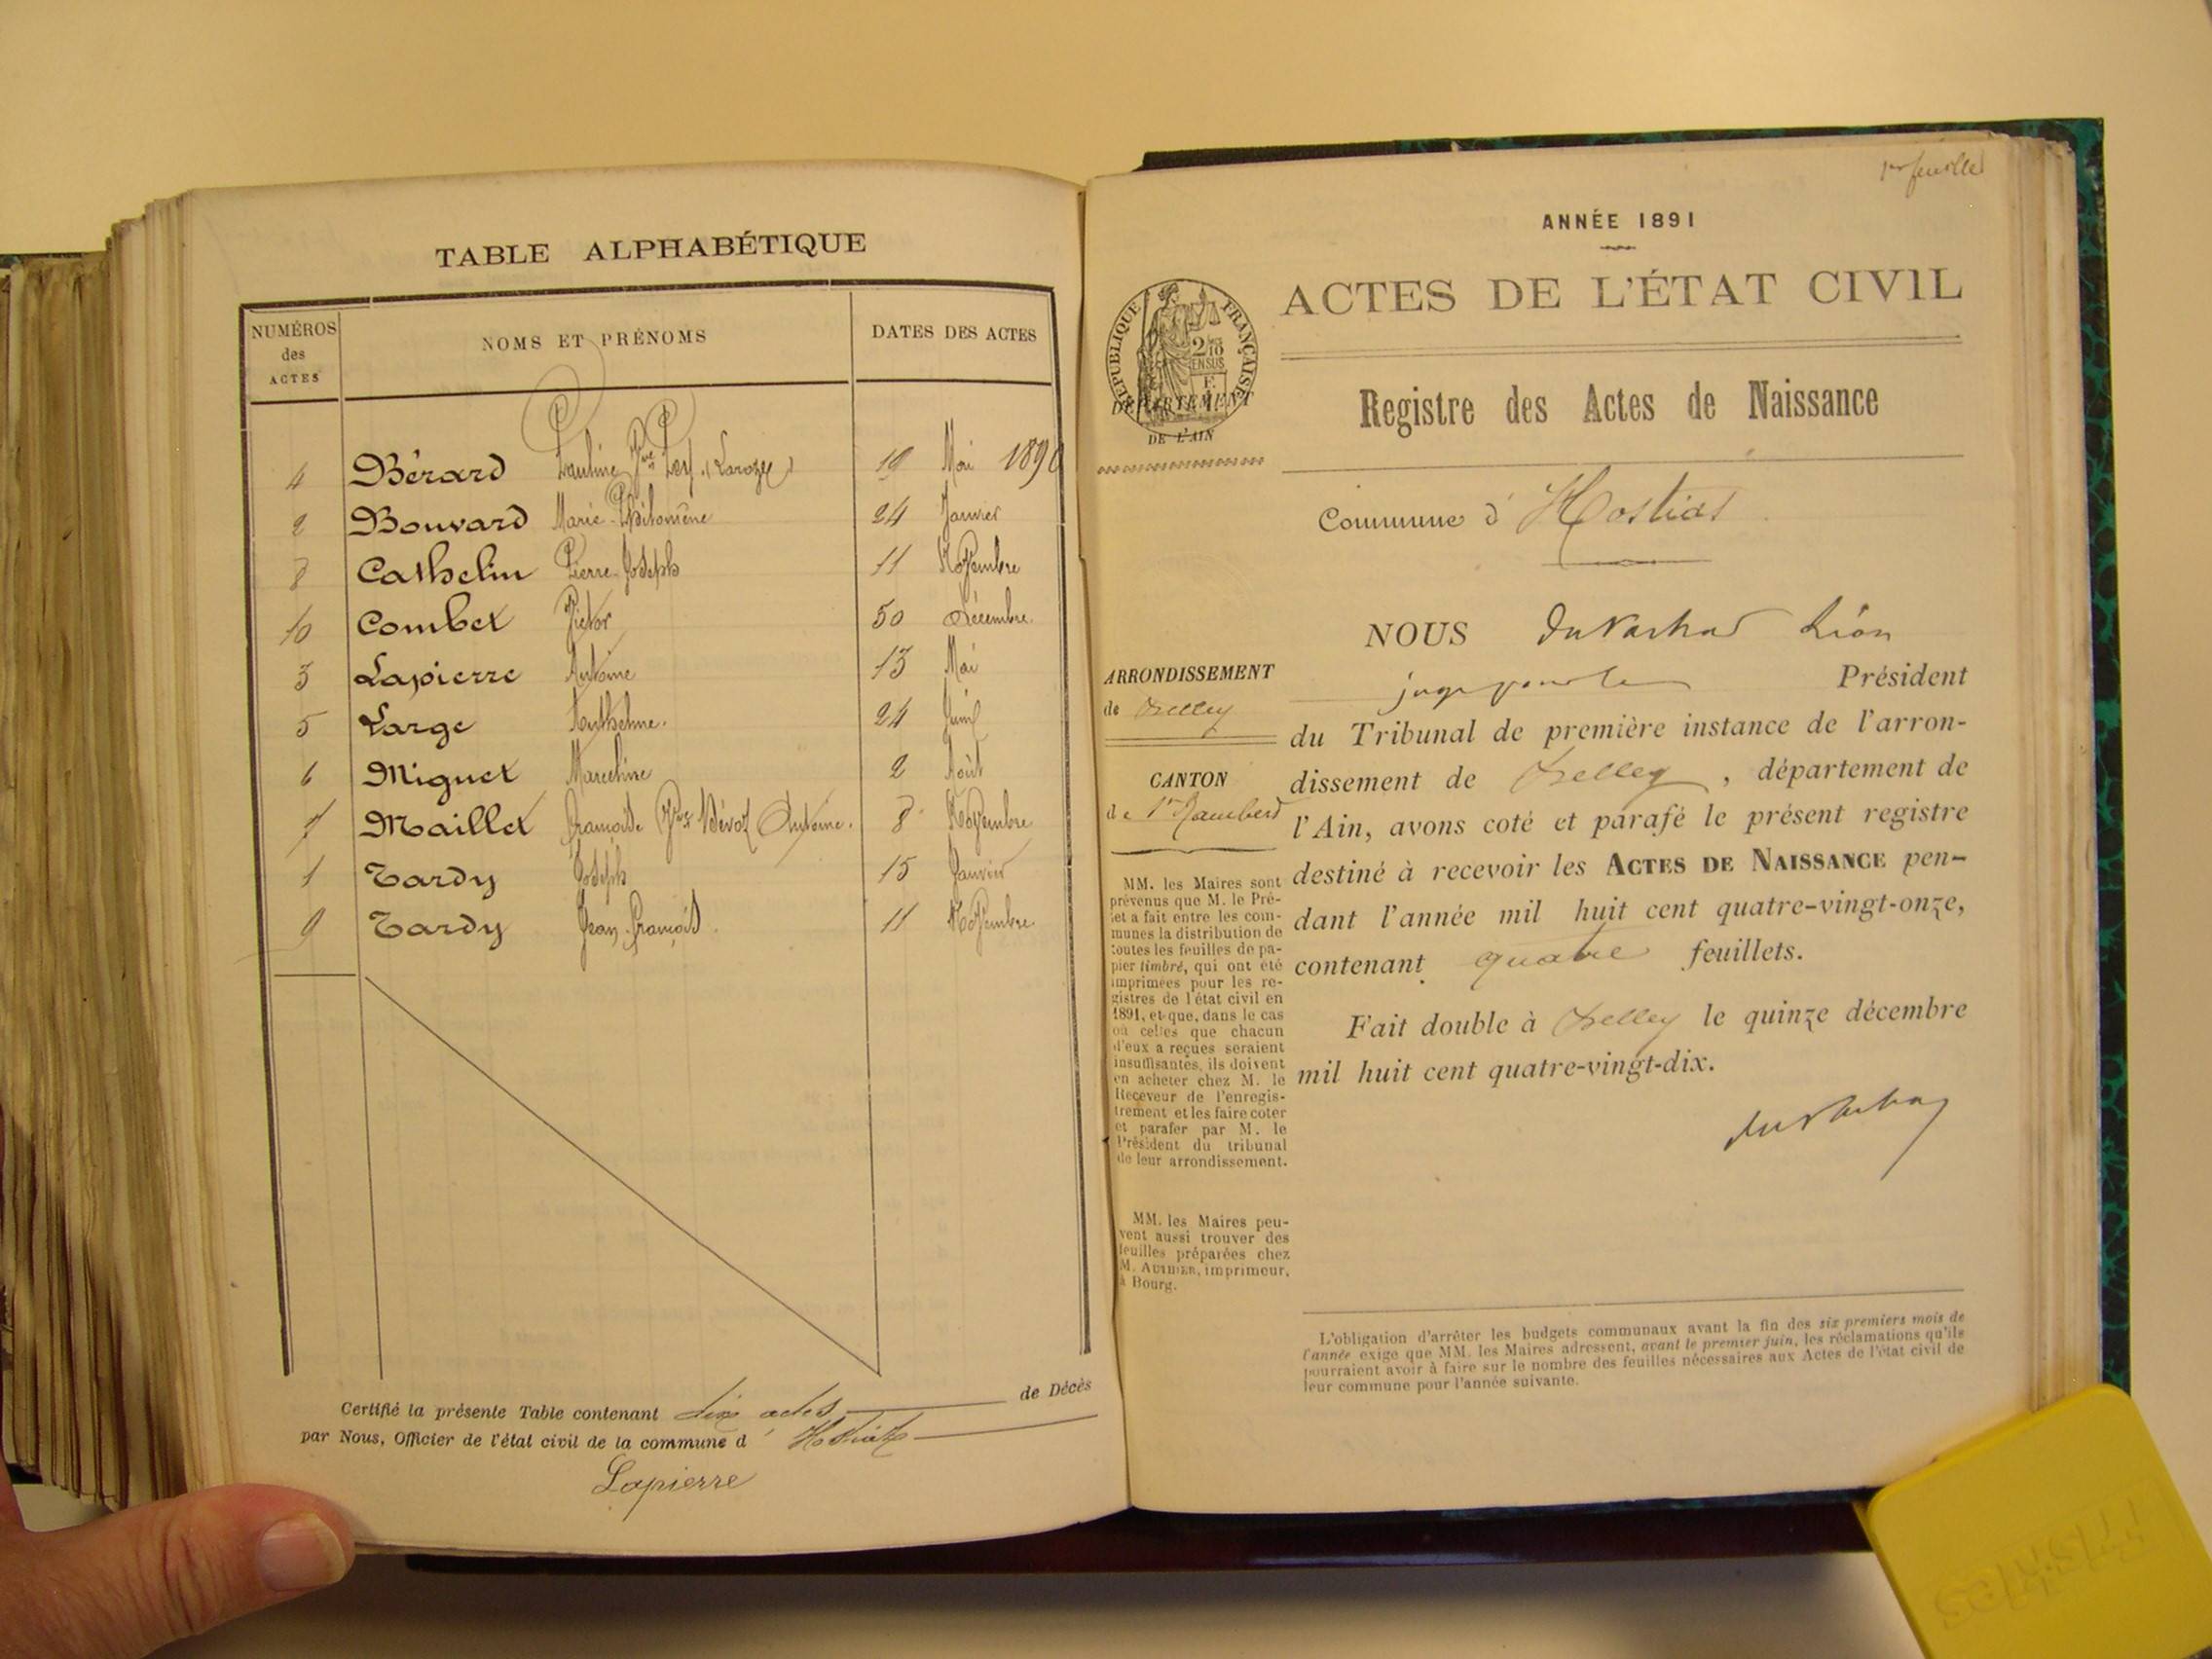 TABLE ALPHABÉTIQUE
NUMÉROS des ACTES NOMS ET PRÉNOMS DATES DES ACTES
4 Bérard Pauline Vve 19 Mai 1890
2 Bouvard Marie-Philomène 24 Janvier
8 Cathelin Pierre-Joseph 11 Novembre
10 Combet Victor 30 Décembre
3 Lapierre Antoine 13 Mai
5 Large Anthelme. 24 Juin
6 Miguet Marceline 2 Août
7 Maillet Françoise Vve Antoine. 8 Novembre
1 Tardy Joseph 15 Janvier
9 Tardy Jean-François. 11 Novembre
Certifié la présente Table contenant dix actes de Décès
par Nous, Officier de l'état civil de la commune d' Hostiaz
Lapierre
1er feuillet
ANNÉE 1891
ACTES DE L'ÉTAT CIVIL
RÉPUBLIQUE FRANÇAISE
DÉPARTEMENT
DE L'AIN
Registre des Actes de Naissance
Commune d' Hostias
NOUS Léon
Président
ARRONDISSEMENT
de Belley
du Tribunal de première instance de l'arron-
dissement de Belley, département de
CANTON
de St Rambert
l'Ain, avons coté et parafé le présent registre
destiné à recevoir les ACTES DE NAISSANCE pen-
dant l'année mil huit cent quatre-vingt-onze,
contenant quatre feuillets.
Fait double à Belley le quinze décembre
mil huit cent quatre-vingt-dix.
MM. les Maires sont
prévenus que M. le Pré-
fet a fait entre les com-
munes la distribution de
toutes les feuilles de pa-
pier timbré, qui ont été
imprimées pour les re-
gistres de l'état civil en
1891, et que, dans le cas
où celles que chacun
d'eux a reçues seraient
insuffisantes, ils doivent
en acheter chez M. le
Receveur de l'enregis-
trement et les faire coter
et parafer par M. le
Président du tribunal
de leur arrondissement.
MM. les Maires peu-
vent aussi trouver des
feuilles préparées chez
M. AUTHIER, imprimeur,
à Bourg.
L'obligation d'arrêter les budgets communaux avant la fin des six premiers mois de
l'année exige que MM. les Maires adressent, avant le premier juin, les réclamations qu'ils
pourraient avoir à faire sur le nombre des feuilles nécessaires aux Actes de l'état civil de
leur commune pour l'année suivante.